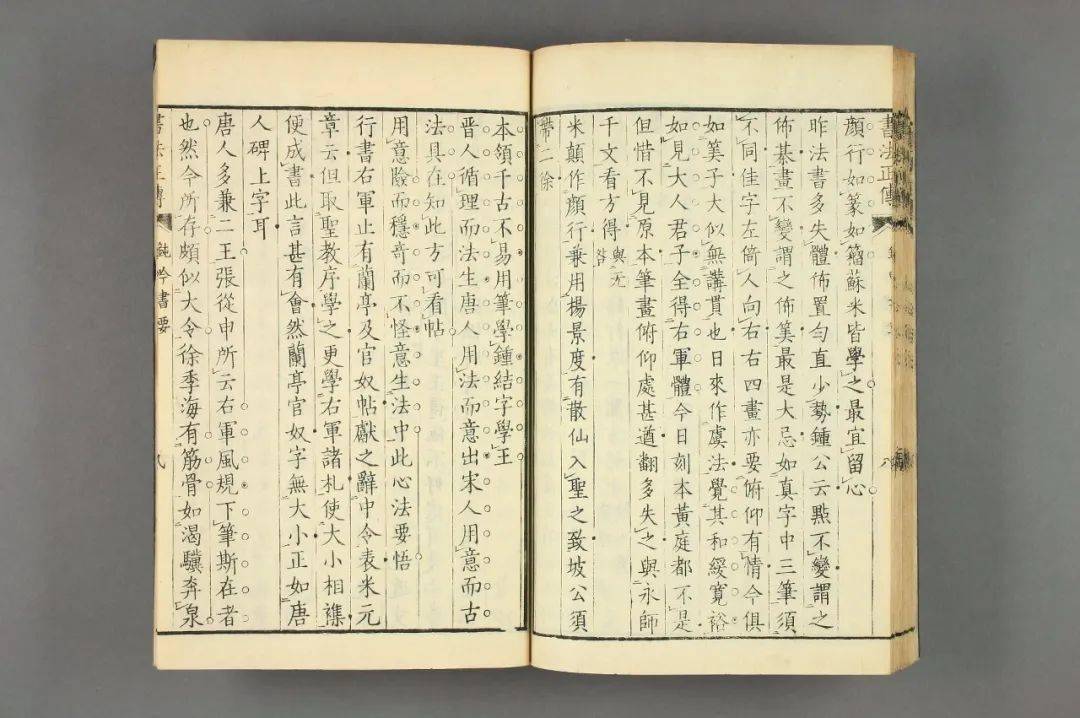 書法正傳
顔行如篆如籀蘇米皆學之最宜留心
昨法書多失體佈置勻直少勢鍾公云㸃不變謂之
佈棊畫不變謂之佈筭最是大忌如真字中三筆須
不同佳字左倚人向右右四畫亦要俯仰有情今俱
如筭子大似無講貫也日來作虞法覺其和緩寬裕
如見大人君子全得右軍體今日刻本黃庭都不是
但惜不見原本筆畫俯仰處甚遒翻多失之與永師
千文看方得
與无
咎
米顛作顔行兼用楊景度有散仙入聖之致坡公須
帶二徐
本領千古不易用筆學鍾結字學王
晉人循理而法生唐人用法而意出宋人用意而古
法具在知此方可看帖
用意險而穩奇而不怪意生法中此心法要悟
行書右軍止有蘭亭及官奴帖獻之辭中令表米元
章云但取聖教序學之更學右軍諸札使大小相雜
便成書此言甚有會然蘭亭官奴字無大小正如唐
人碑上字耳
唐人多兼二王張從申所云右軍風規下筆斯在者
也然今所存頗似大令徐季海有筋骨如渴驥奔泉
書法正傳 鈍吟書要